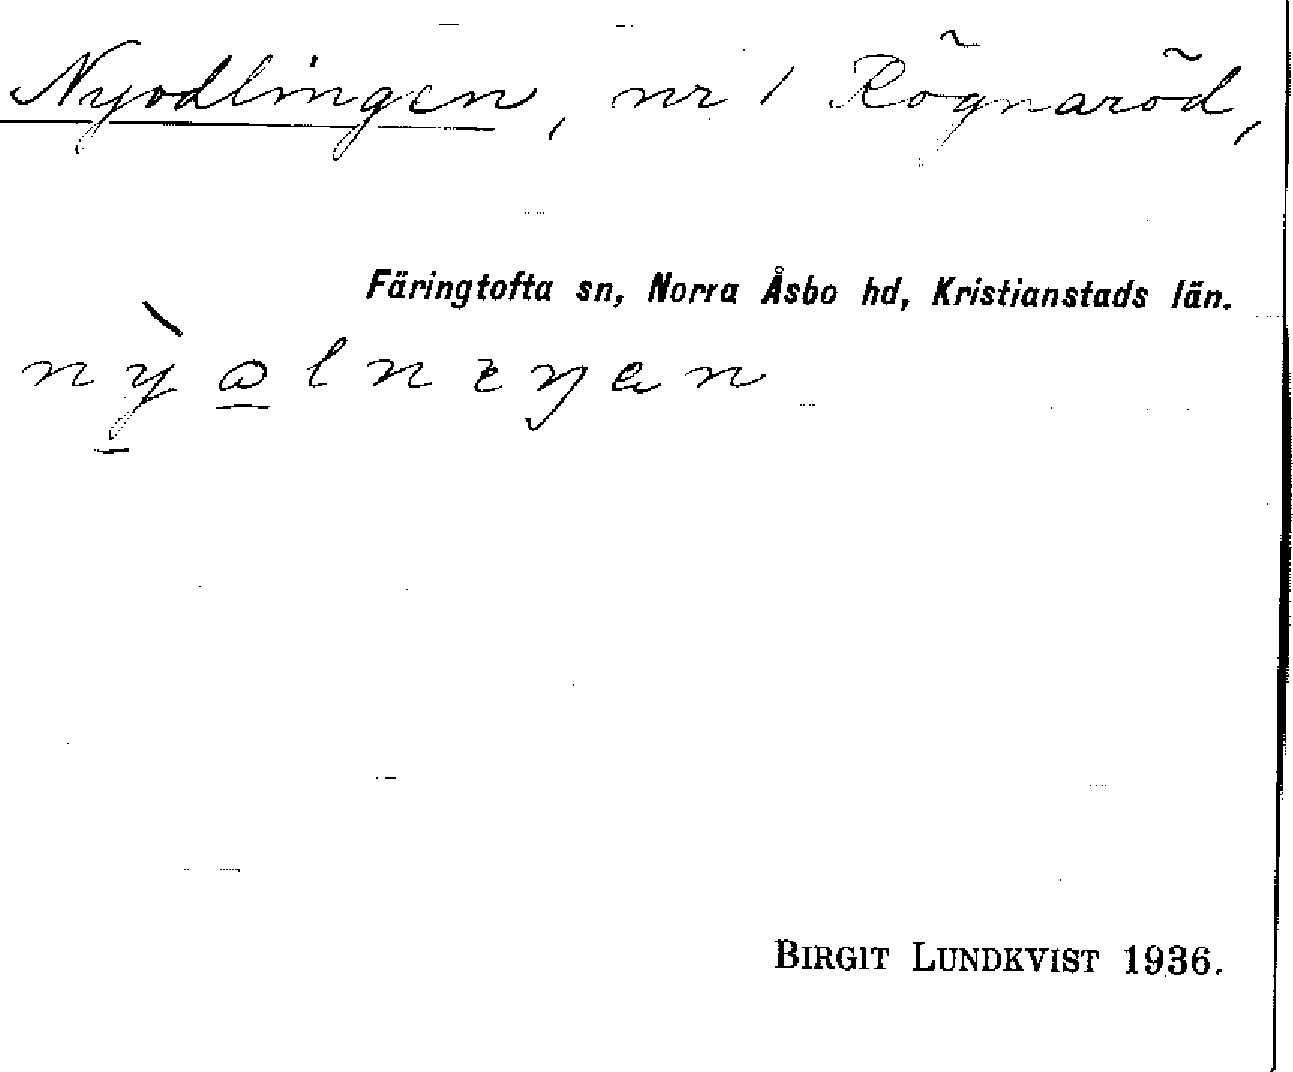 Nyodlingen, nr 1 Rögnaröd,
Färingtofta sn, Norra Åsbo hd, Kristianstads län.
BIRGIT LUNDKVIST 1936.